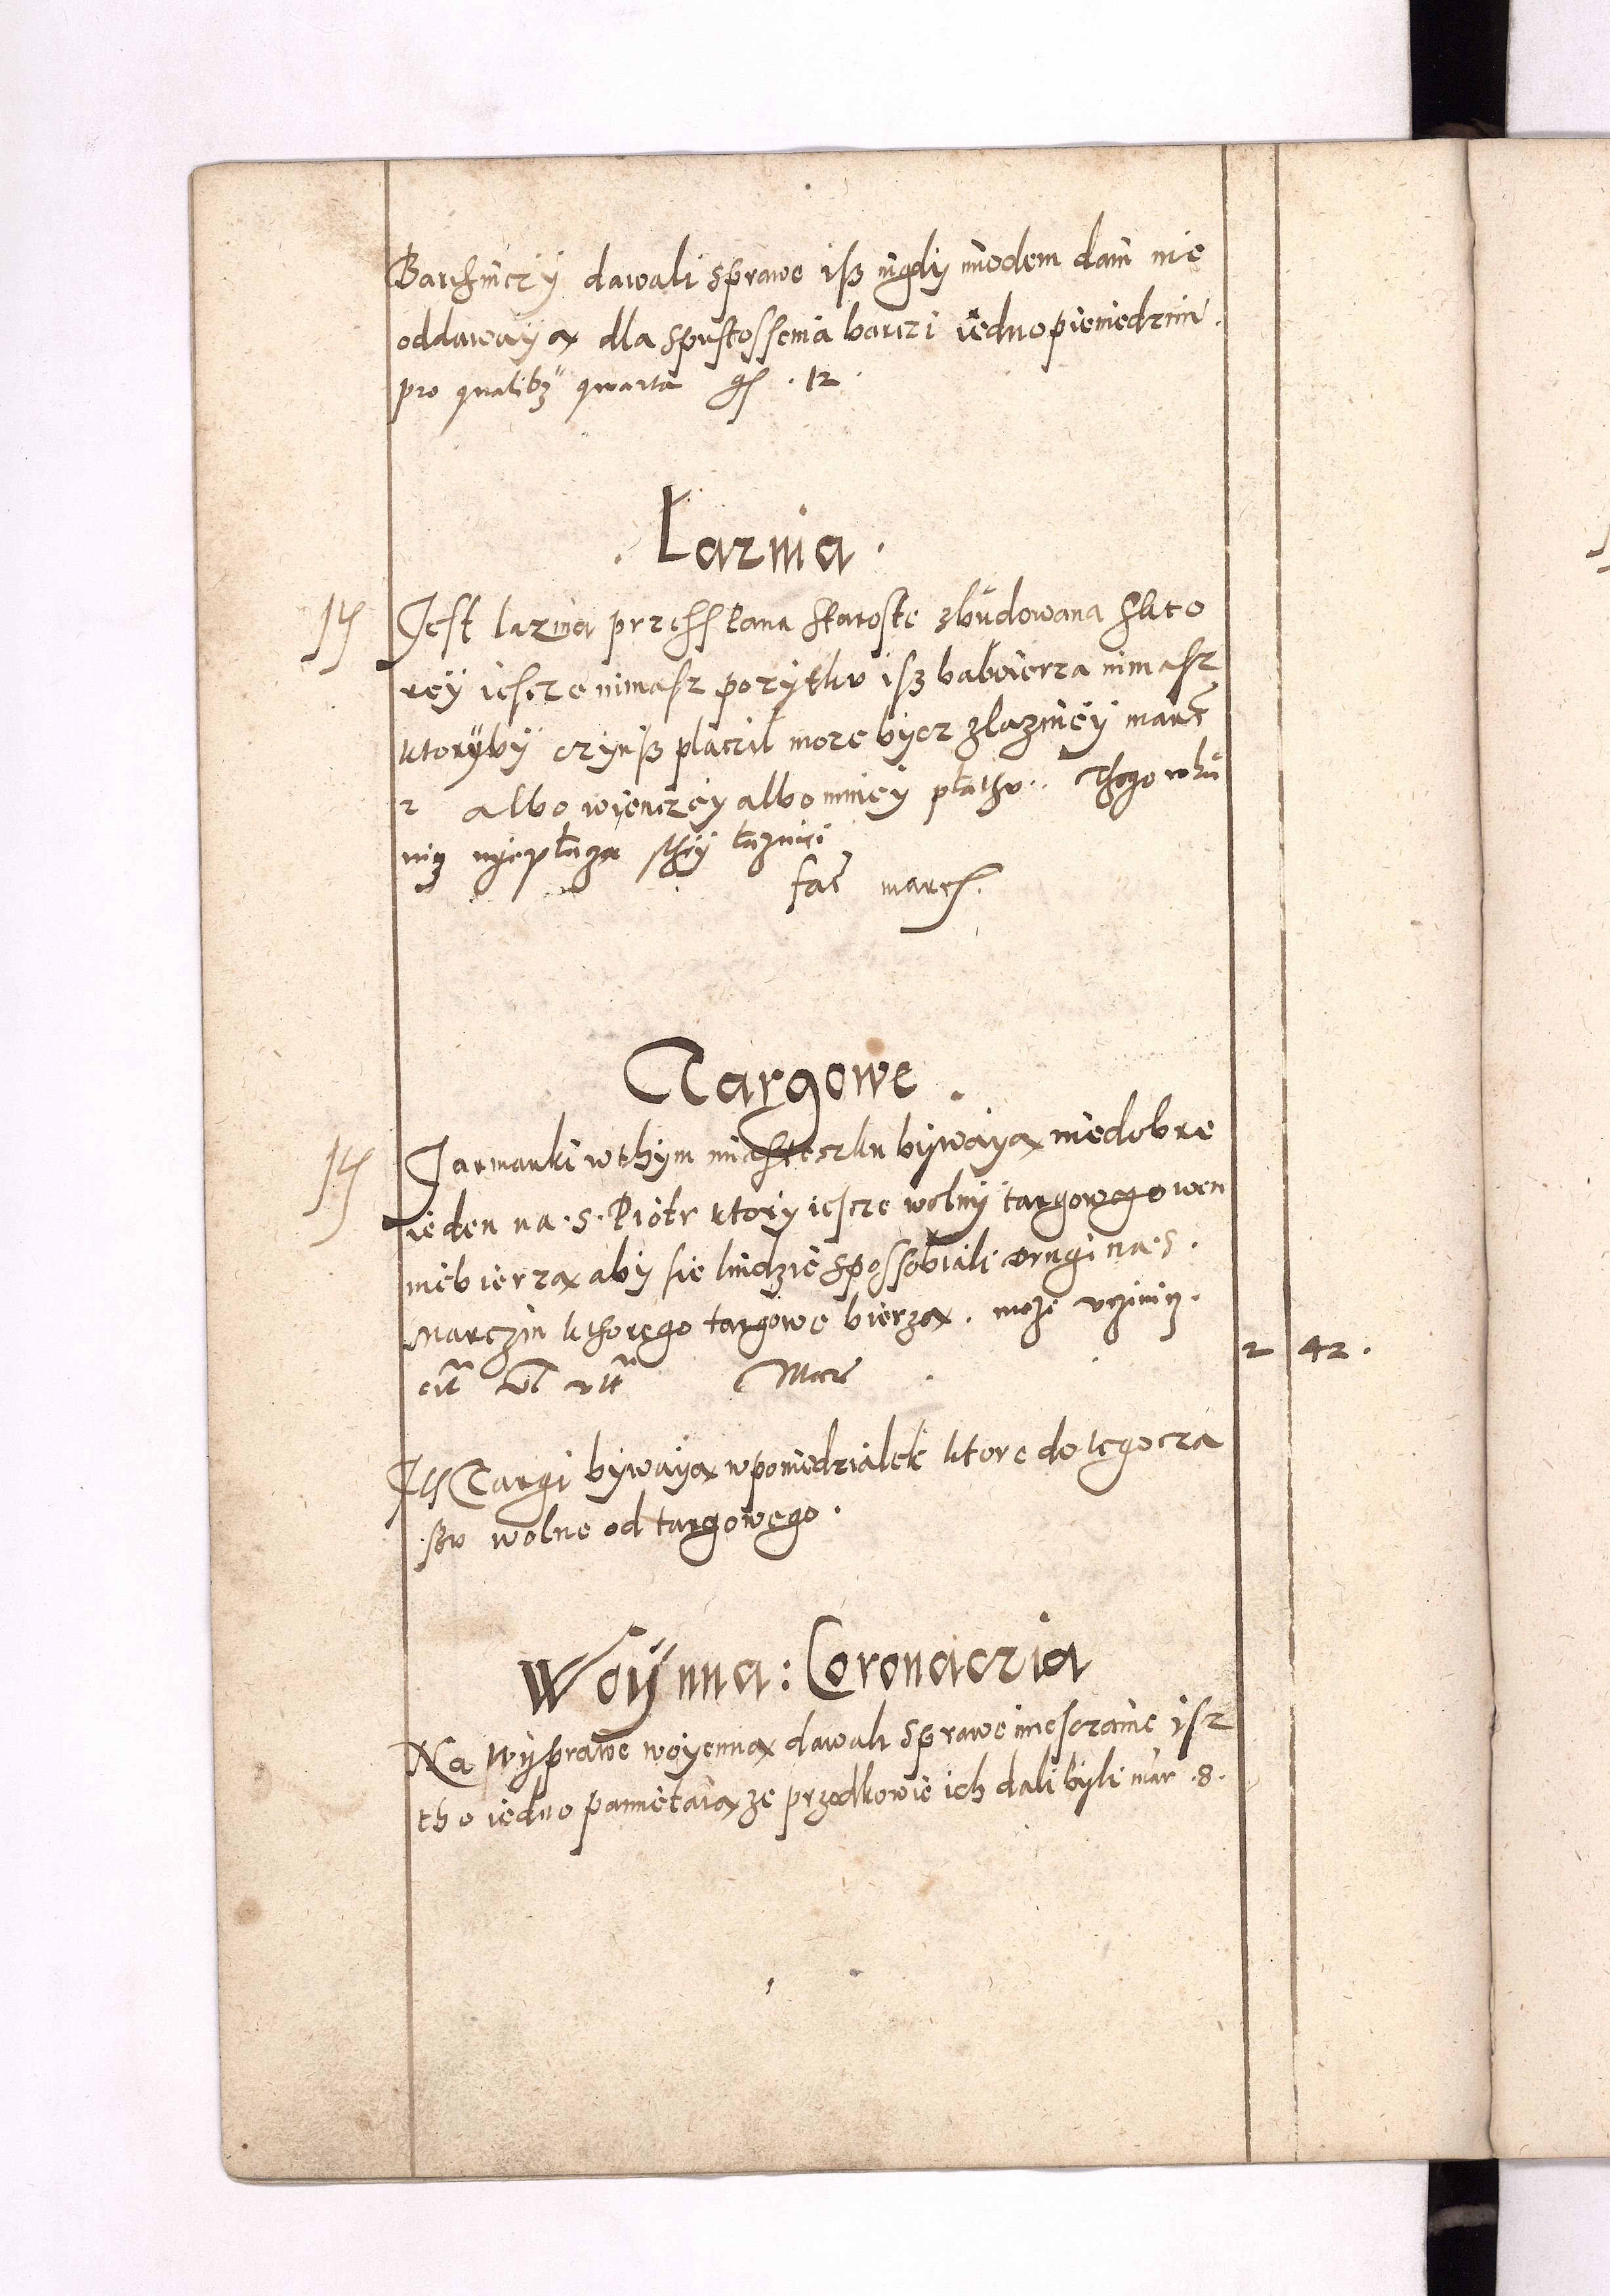 Barthniczÿ dawali sprawe isß nigdÿ miodem dani nie
oddawaÿa dla spustossenia barczi iedno pieniedzmi
pro qualibz quarta gſ . 12 .
. Łaznia .
Jt Jest laznia przess pana staroste zbudowana s kto
reÿ iescze nimasz pozÿtku isß balwierza nimasz
ktorÿbÿ czÿnsß placzil moze bÿcz z lazniéÿ marc
2 albo wiencżeÿ albo mnieÿ plathv .. Thego roku
nicz nÿeplaza s theÿ lazniei
fac̄ marcſ .
Targowe .
Jt Jarmarki w thÿm miasteczku bÿwaÿa niedobre
ieden na . S . Piotr ktorÿ iescze wolnÿ targowego wen
niebierza abÿ sie ludzie spossobiali drugi na S .
Marczin kthorego targowe bierza . moze uczinicz .
Marc 2 42 .
Jtſ Targi bÿwaÿa w poniedzialek ktore do tego cza
ssv wolne od targowego .
Woÿnna : Coronaczia
Na wÿprawe woÿenna dawali sprawe miesczanie isz
tho iedno pamietaia ze przodkowie ich dali bÿli mar . 8 .